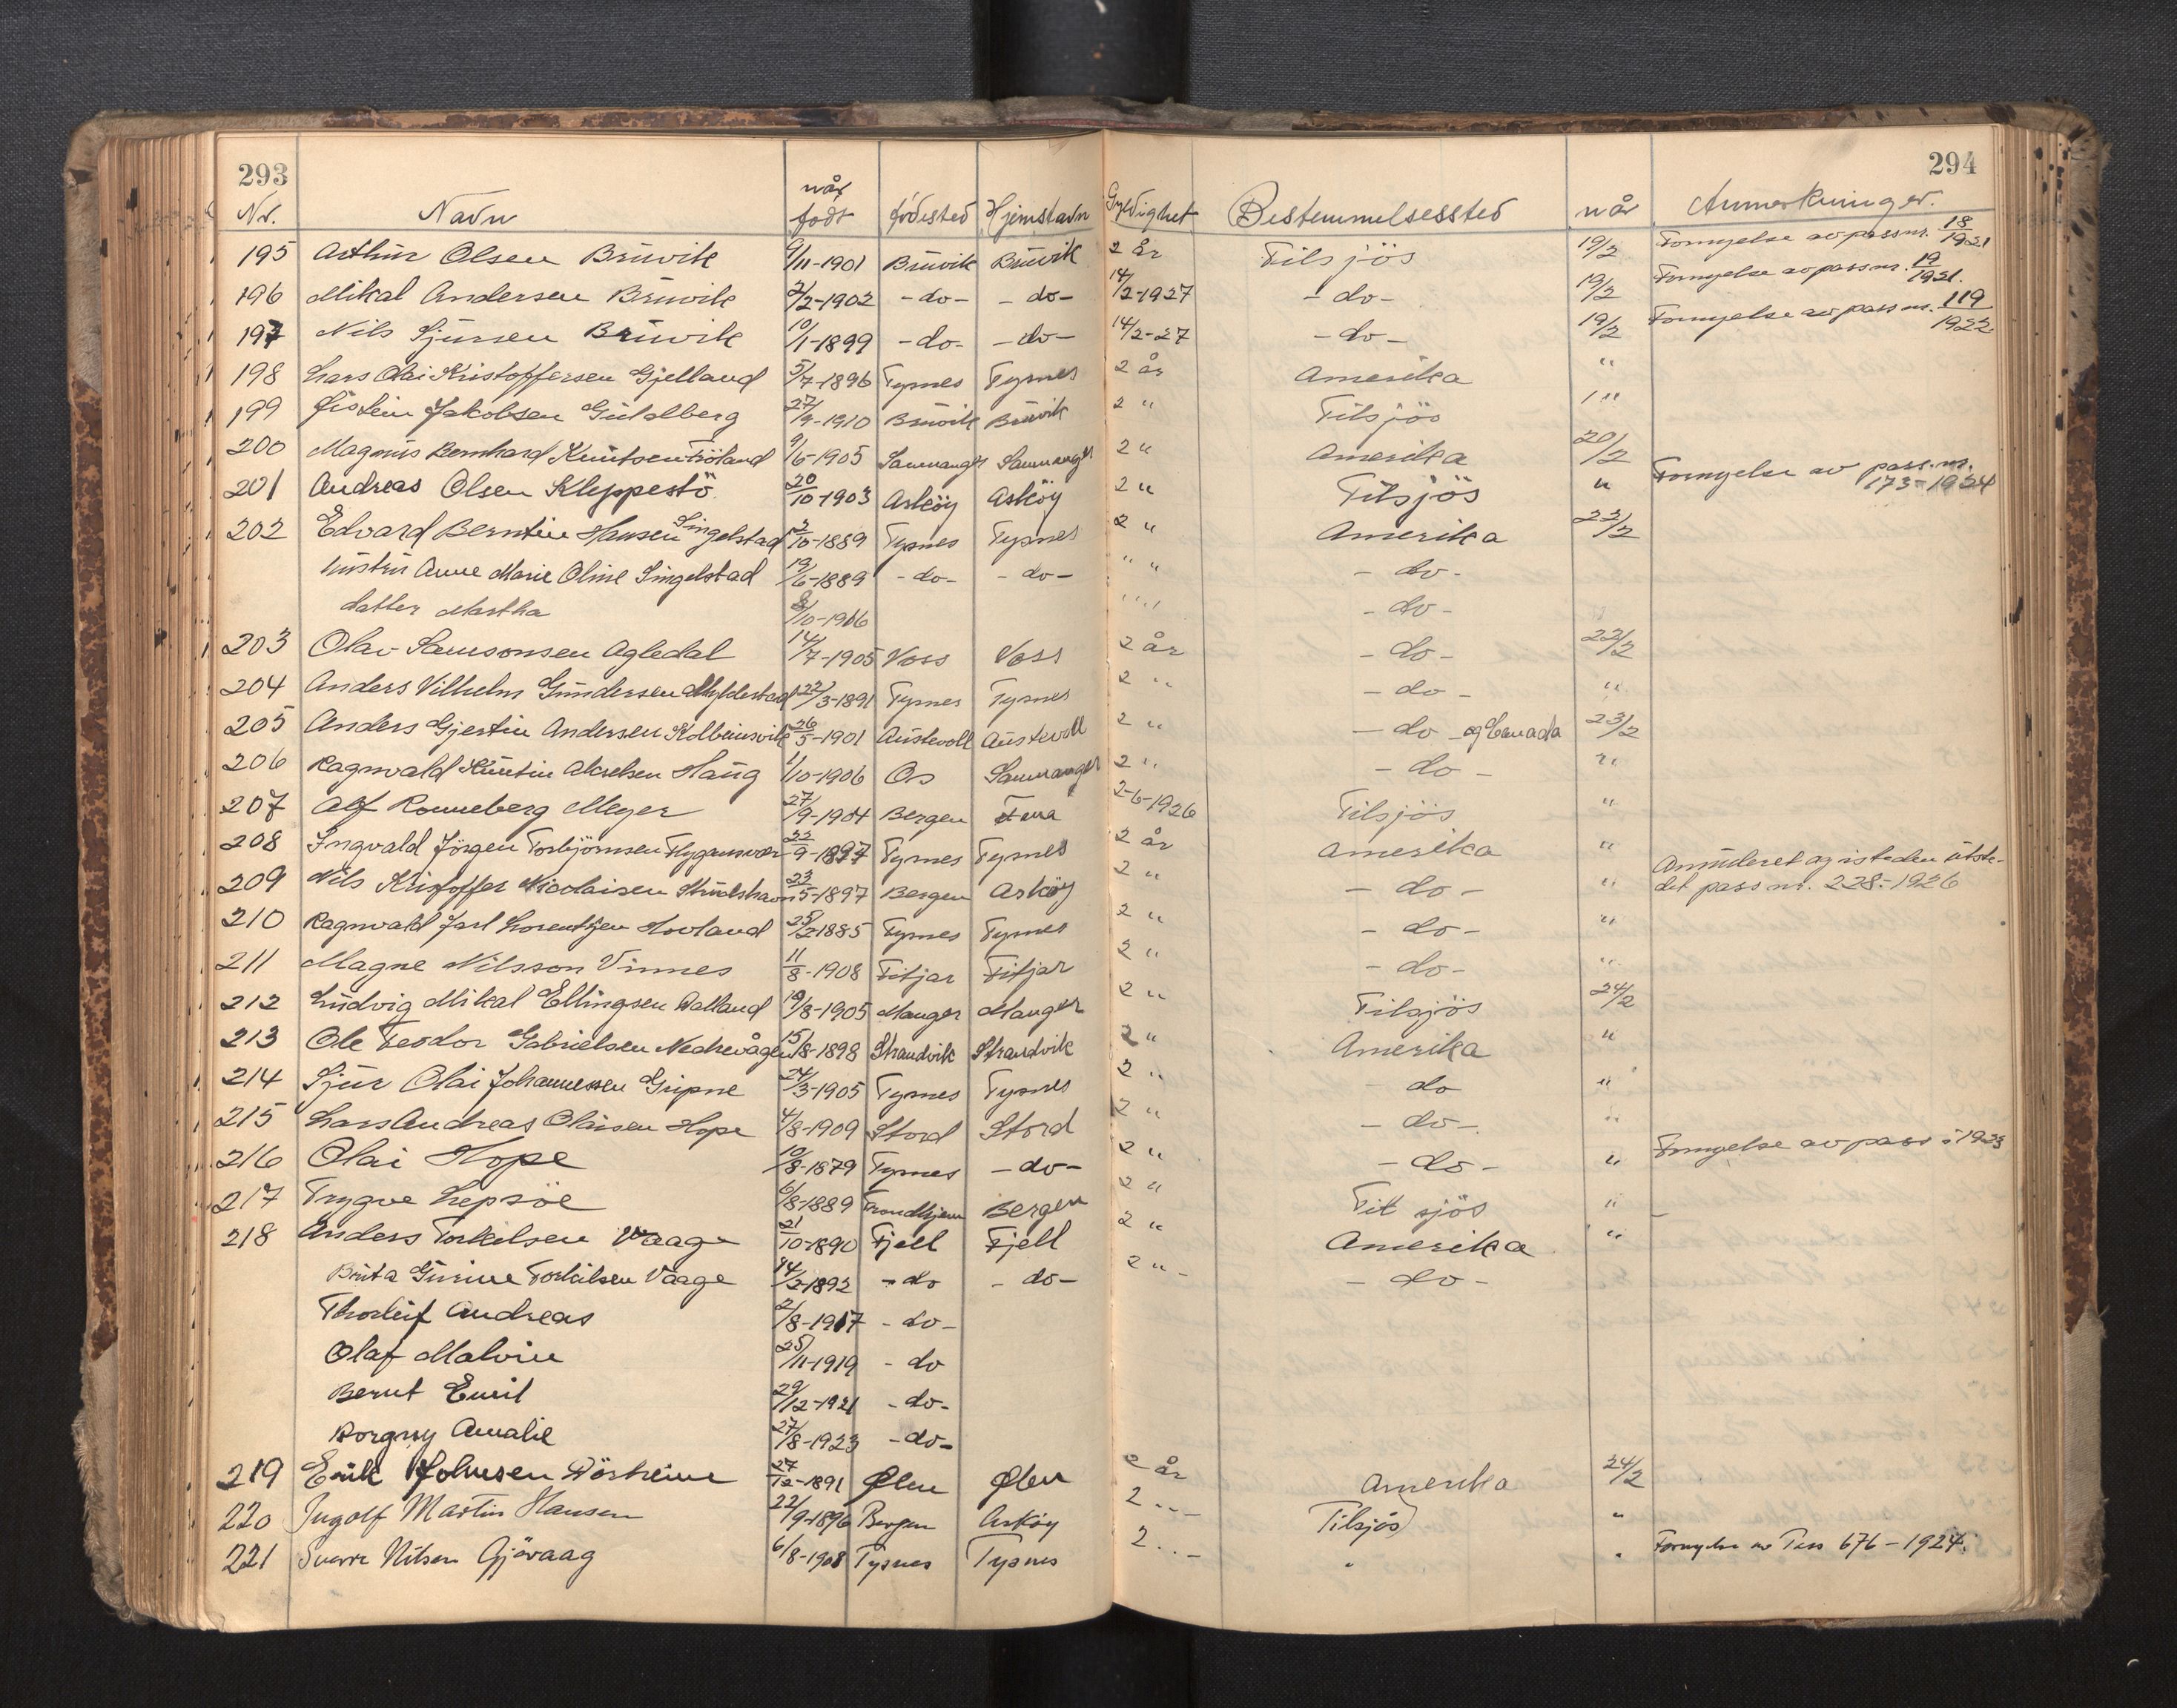 293 294
Nr. Navn når født fødested Hjemstavn Gyldighet Bestemmelsessted når Anmerkninger.
195 Arthur Olsen Bruvik 9/11-1901 Bruvik Bruvik 2 år Tilsjös 19/2 Fornyelse av pass nr. 18/1921
196 Mikal Andersen Bruvik 2/2-1902 -do- -do- 14/2-1927 -do- 19/2 Fornyelse av pass nr. 19/1921.
197 Nils Sjursen Bruvik 10/1-1899 -do- -do- 14/2-27 -do- 19/2 Fornyelse av pass nr. 119/1922.
198 Lars Olai Kristoffersen Gjelland 5/7-1896 Tysnes Tysnes 2 år Amerika "
199 Øistein Jakobsen Guldberg 27/9-1910 Bruvik Bruvik 2 " Tilsjös "
200 Magnus Bernhard Knutsen Fröland 9/6-1905 Samnanger Samnanger 2 " Amerika 20/2
201 Andreas Olsen Kleppestö 20/10-1903 Asköy Asköy 2 " Tilsjös " Fornyelse av pass.nr. 173-1924
202 Edvard Berntin Hansen Singelstad 2/10-1889 Tysnes Tysnes 2 " Amerika 22/2
hustru Anne Marie Oline Singelstad 19/6-1889 -do- -do- " " -do-
datter Martha 8/10-1916 " " -do-
203 Olav Samsonsen Agledal 14/7-1905 Voss Voss 2 år -do- 22/2
204 Anders Vilhelm Gundersen Myldestad 22/3-1891 Tysnes Tysnes 2 " -do- "
205 Anders Gjertin Andersen Kolbeinsvik 26/5-1901 Austevoll Austevoll 2 " -do- og Canada 23/2
206 Ragnvald Kurtin Akselsen Haug 1/10-1906 Os Samnanger 2 " -do- "
207 Alf Ronneberg Meyer 27/9-1904 Bergen Fana 2-6-1926 Tilsjös "
208 Ingvald Jörgen Torbjörnsen Flygansvær 22/9-1897 Tysnes Tysnes 2 år Amerika "
209 Nils Kristoffer Nicolaisen Skudshavn 23/5-1897 Bergen Asköy 2 " -do- " Annuleret og isteden utste-
det pass nr. 228.-1926
210 Ragnvald Jarl Lorentzen Hovland 25/2-1885 Tysnes Tysnes 2 " -do- "
211 Magne Nilsson Vinnes 11/8-1908 Fitjar Fitjar 2 " -do- "
212 Ludvig Mikal Ellingsen Walland 19/8-1905 Manger Manger 2 " Tilsjös 24/2
213 Ole Teodor Gabrielsen Nedrevågen 15/8-1898 Strandvik Strandvik 2 " Amerika "
214 Sjur Olai Johannessen Gripne 24/3-1905 Tysnes Tysnes 2 " do "
215 Lars Andreas Olaisen Hope 4/8-1909 Stord Stord 2 " -do- "
216 Olai Hope 10/8-1879 Tysnes -do- 2 " -do- " Fornyelse av pass i 1923
217 Trygve Lepsöe 6/8-1889 Trondhjem Bergen 2 " Til sjös "
218 Anders Torkelsen Vaage 21/10-1890 Fjell Fjell 2 " Amerika "
Brita Gurine Torkilsen Vaage 14/2-1892 -do -do- 2 " -do-
Thorleif Andreas 2/8-1917 -do-
Olaf Malvin 25/11-1919 -do
Bernt Emil 29/12-1921 -do-
Borgny Amalie 27/8-1923 -do-
219 Erik Johnsen Dörheim 27/12-1891 Ølen Ølen 2 år Amerika 24/2
220 Ingolf Martin Hansen 22/9-1896 Bergen Asköy 2 " Tilsjös "
221 Sverre Nilsen Gjövaag 6/8-1908 Tysnes Tysnes 2 " " " Fornyelse av Pass 676-1924.